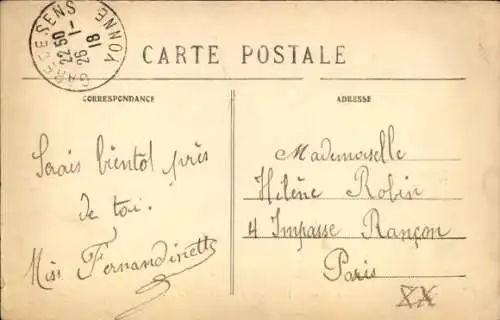 GARE DE SENS
YONNE
22 50
26 - 1
18
CARTE POSTALE
CORRESPONDANCE
ADRESSE
Serais bientot près
de toi.
Miss Fernandinette
Mademoiselle
Hélène Robin
4 Impasse Rançon
Paris
XX